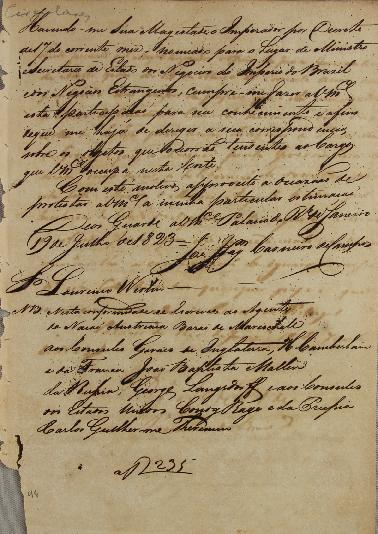 Havendo-me Sua Magestade o Imperador por Decreto
de 17 do corrente mez nomeado para o Lugar de Ministro
e Secretario de Estado dos Negocios do Imperio do Brasil
e dos Negocios Estrangeiros, cumpre-me fazer a
esta participação para seu conhecimento e afim
de que me haja de dirigir a sua correspondencia
sobre os objetos que tendentes ao Cargo
que occupa nesta Corte.
Com este motivo, approveito a occasião de
protestar a minha particular estima
Deos Guarde a Palacio do Rio de Janeiro
19 de Julho de 1823 = Joaq Carneiro de Campos
Sr Lourenço
NB Nesta conformidade se escreveo ao Agente
de Austriaco Barão de Mareschal
aos Consules Geraes de Inglaterra, H. Chamberlain
e da França João Baptista Maller
da Russia, George Langsdorff e aos Consules
dos Estados Unidos, Condy Raguet e da Prussia
Carlos Guilherme Theremin
235